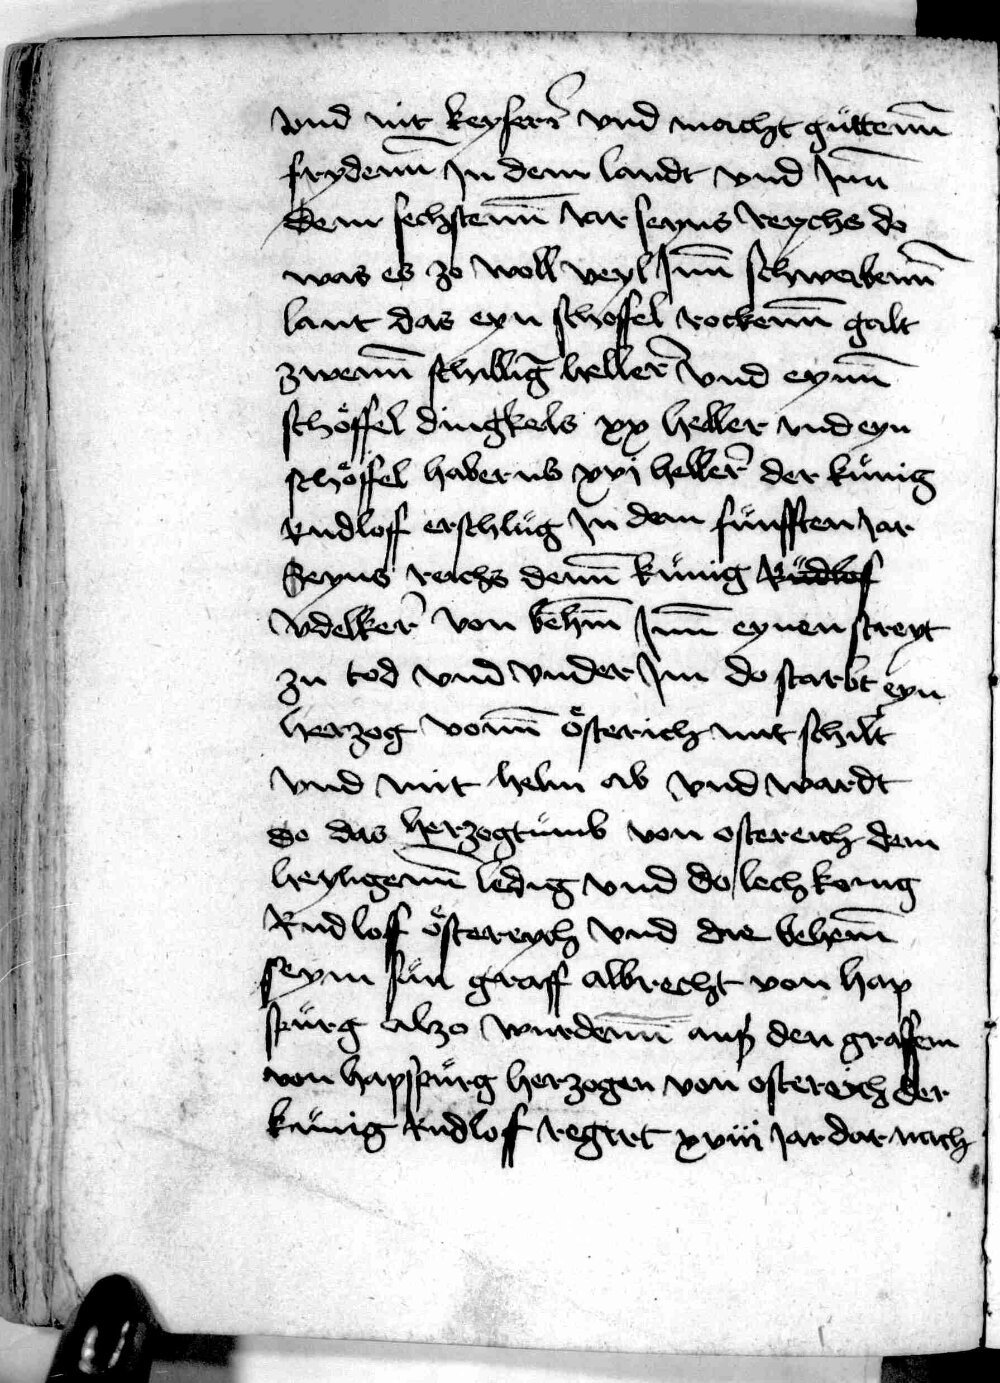 vnd nit keyserr vnd macht gůttenn̄
frydenn̄ In dem landt vnd Inn̄
dem sechstenn̄ Iar seyns reychs do
was es zo woll veyl Inn̄ schwebenn̄
lant das eyn schoffel rockenn̄ galt
zwenn̄ schillīg hellerr vnd eynn̄
schöffel dingkels xx heller vnd eyn
schöffel habernb xvi heller der kůnig
Rudloff erschlůg In dem fůnfften Iar
Seyns reichs denn̄ kůnig Růdlof
vdelker von behm̄ Inn̄ eynen streyt
zu tod vnd vnder Im do starbt eyn
herzog vonn̄ österich mit schilt
vnd mit helm ab vnd wardt
do das herzogtůmb von ostereich dem
heyligenn̄ ledig vnd do lech konig
Rudloff östereych vnd die behem̄
seym sůn graff albrecht von hap
spůrg alzo wurdenn̄ auß den graffem
von hapspůrg herzogen von ostereich der
kůnig Rudloff regirt xviii Iar dar nach